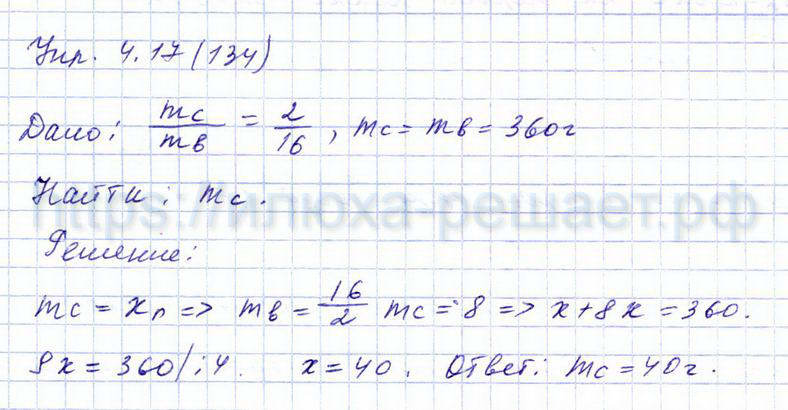 Упр. 4.17 (134)
Дано: mc/mв = 2/16, mc = mв = 360г
Найти: mc.
https://илюха-решает.рф
Решение:
mc = xп => mв = 16/2 mc = 8 => x + 8x = 360.
9x = 360/:4. x = 40. Ответ: mc = 40г.